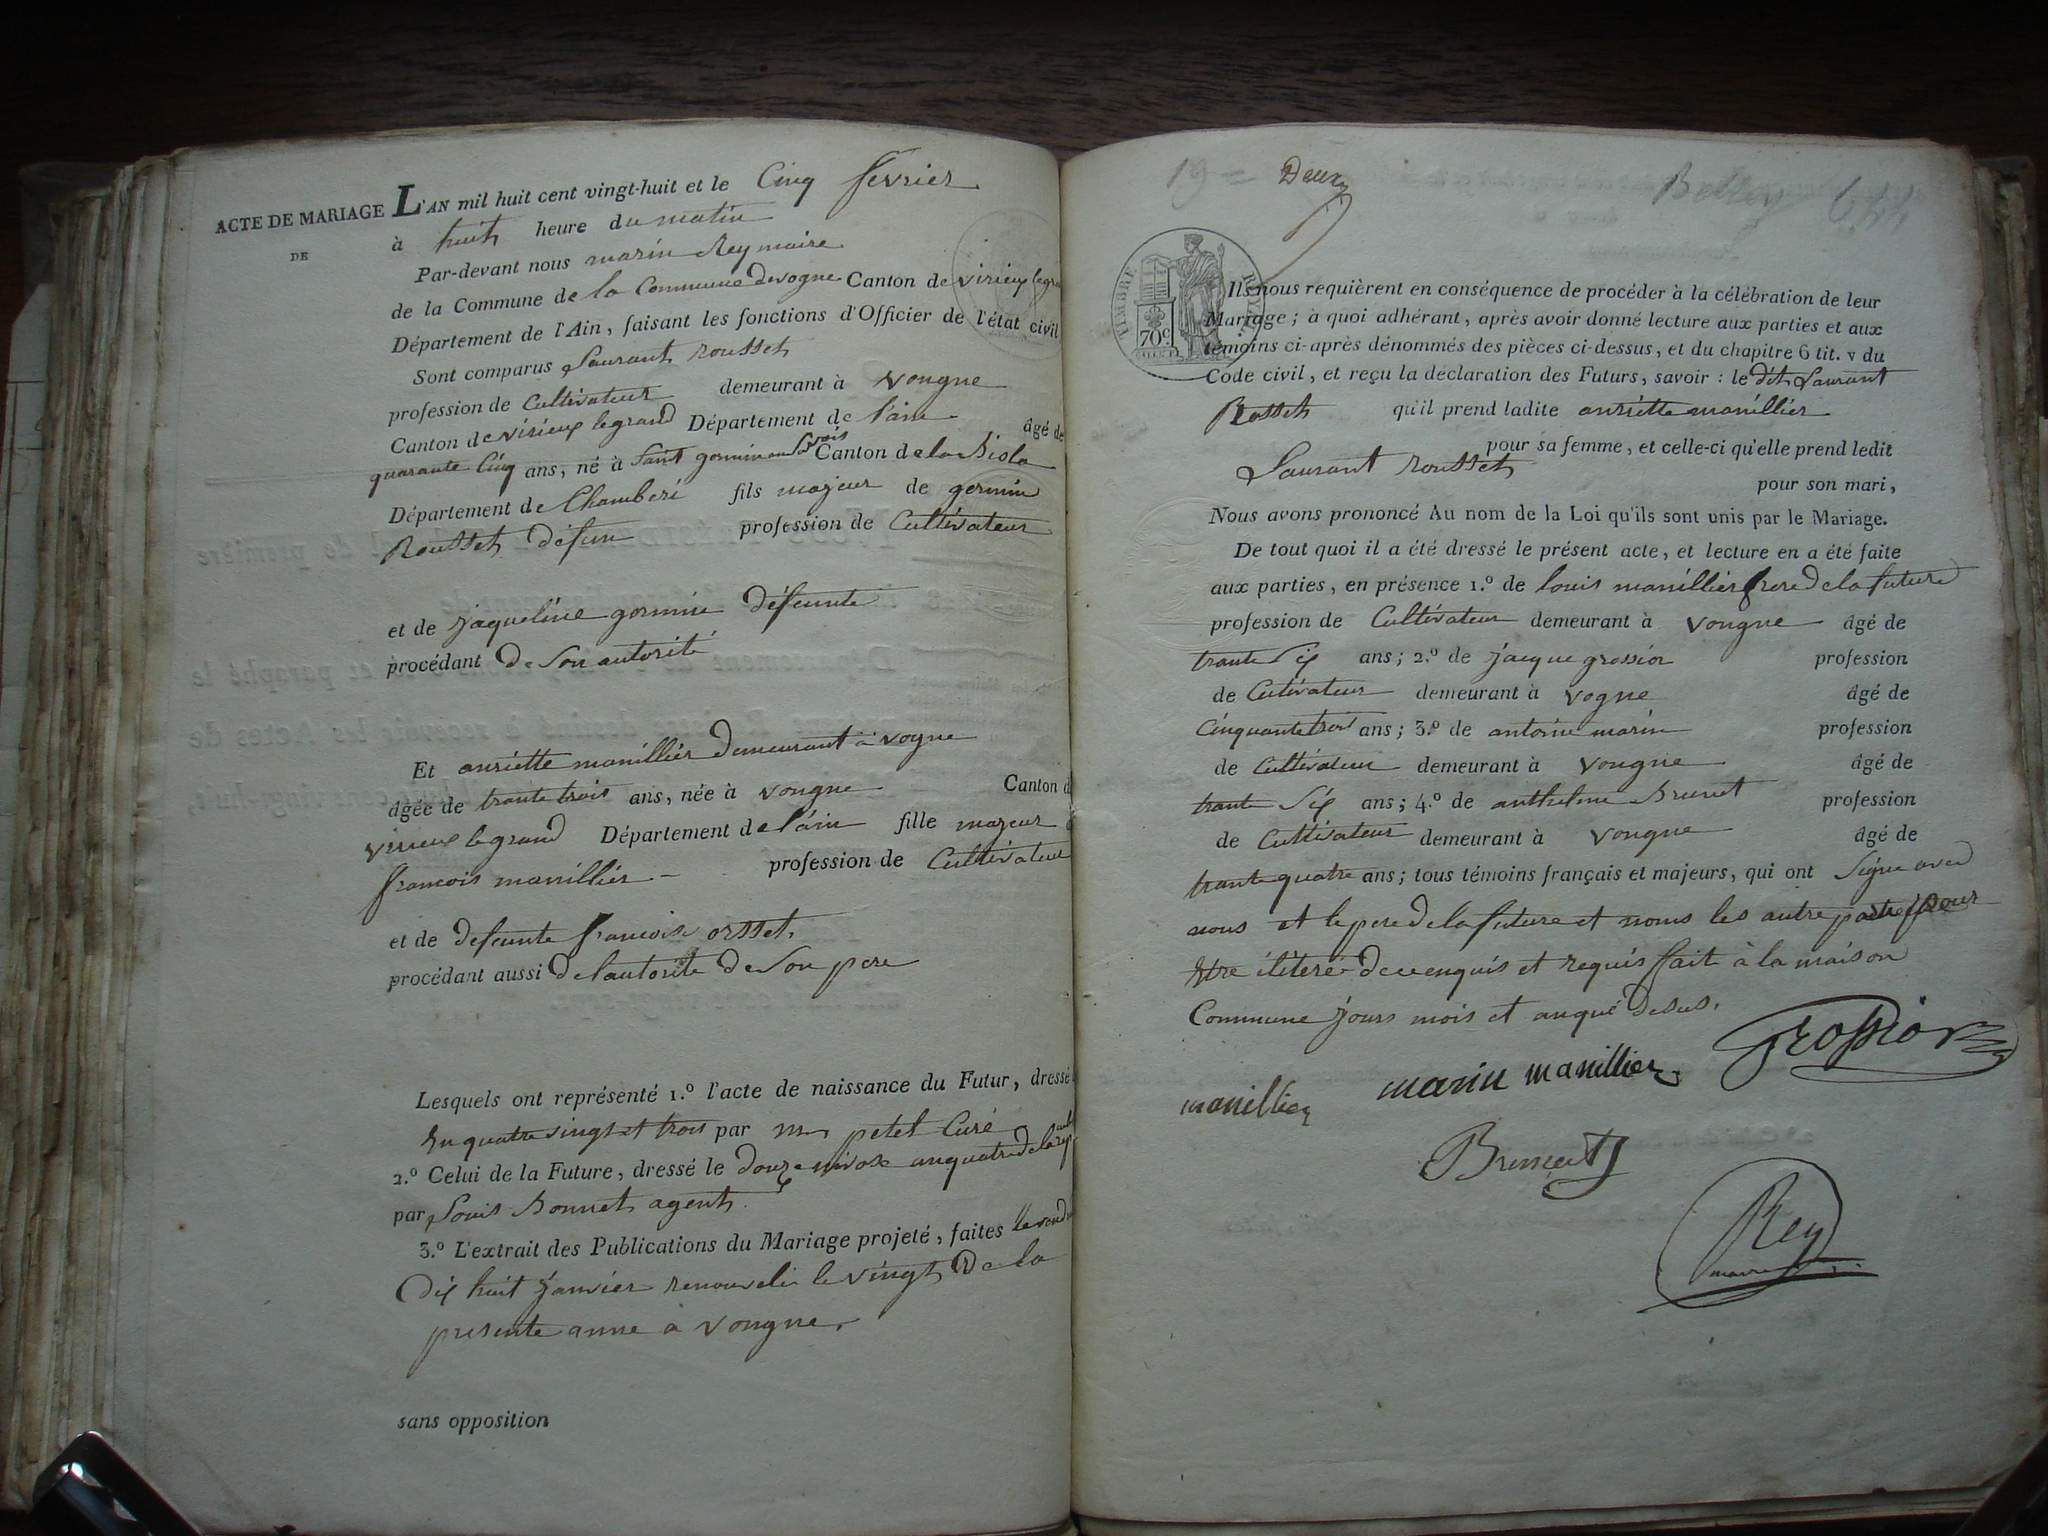 ACTE DE MARIAGE
DE
L'AN mil huit cent vingt-huit et le Cinq fevrier
à huit heure du matin
Par-devant nous marin Rey maire
de la Commune de la Commune devogne Canton de virieux legra
Département de l'Ain, faisant les fonctions d'Officier de l'état civil
Sont comparus Laurant rousset
profession de Cultivateur demeurant à vongne
Canton de virieux legrand Département de l'ain âgé de
quarante Cinq ans, né à Saint germin Canton de la Biola
Département de Chamberi fils majeur de germin
Rousset défun profession de Cultivateur
et de jaqueline germin défunte
procédant de Son autorité
Et anriette manillier demeurant à vogne
âgée de trante trois ans, née à vongne Canton d
virieux legrand Département de l'ain fille majeur d
francois manillier profession de Cultivateur
et de defunte francoise orsset
procédant aussi de l'autorité de Son pere
Lesquels ont représenté 1.º l'acte de naissance du Futur, dressé
En quatre vingt et trois par mr petel Curé
2.º Celui de la Future, dressé le douze nivose anquatre de la rep
par Louis Bonnet agent
3.º L'extrait des Publications du Mariage projeté, faites le
Dix huit janvier renouvelé le vingt de la
presente anne a vongne.
sans opposition
19 = Deux Belley
TIMBRE ROYAL
70c
Ils nous requièrent en conséquence de procéder à la célébration de leur
Mariage; à quoi adhérant, après avoir donné lecture aux parties et aux
témoins ci-après dénommés des pièces ci-dessus, et du chapitre 6 tit. v du
Code civil, et reçu la déclaration des Futurs, savoir : le dit Laurant
Rosset qu'il prend ladite anriette manillier
pour sa femme, et celle-ci qu'elle prend ledit
Laurant rousset
pour son mari,
Nous avons prononcé Au nom de la Loi qu'ils sont unis par le Mariage.
De tout quoi il a été dressé le présent acte, et lecture en a été faite
aux parties, en présence 1.º de louis manillier frere de la future
profession de Cultivateur demeurant à vongne âgé de
trante Six ans; 2.º de jacque grossior profession
de Cutivateur demeurant à vogne âgé de
Cinquante trois ans; 3.º de antoine marin profession
de Cultivateur demeurant à vongne âgé de
trante Six ans; 4.º de anthelme Brunet profession
de Cultivateur demeurant à vongne âgé de
trante quatre ans; tous témoins français et majeurs, qui ont Signe avec
nous et le pere de la future et nom les autre partie pour
Etre ilitere de ce enquis et requis fait à la maison
Commune jours mois et anqué desus.
manillier marin manillier Grossior
Brunet
Rey
maire